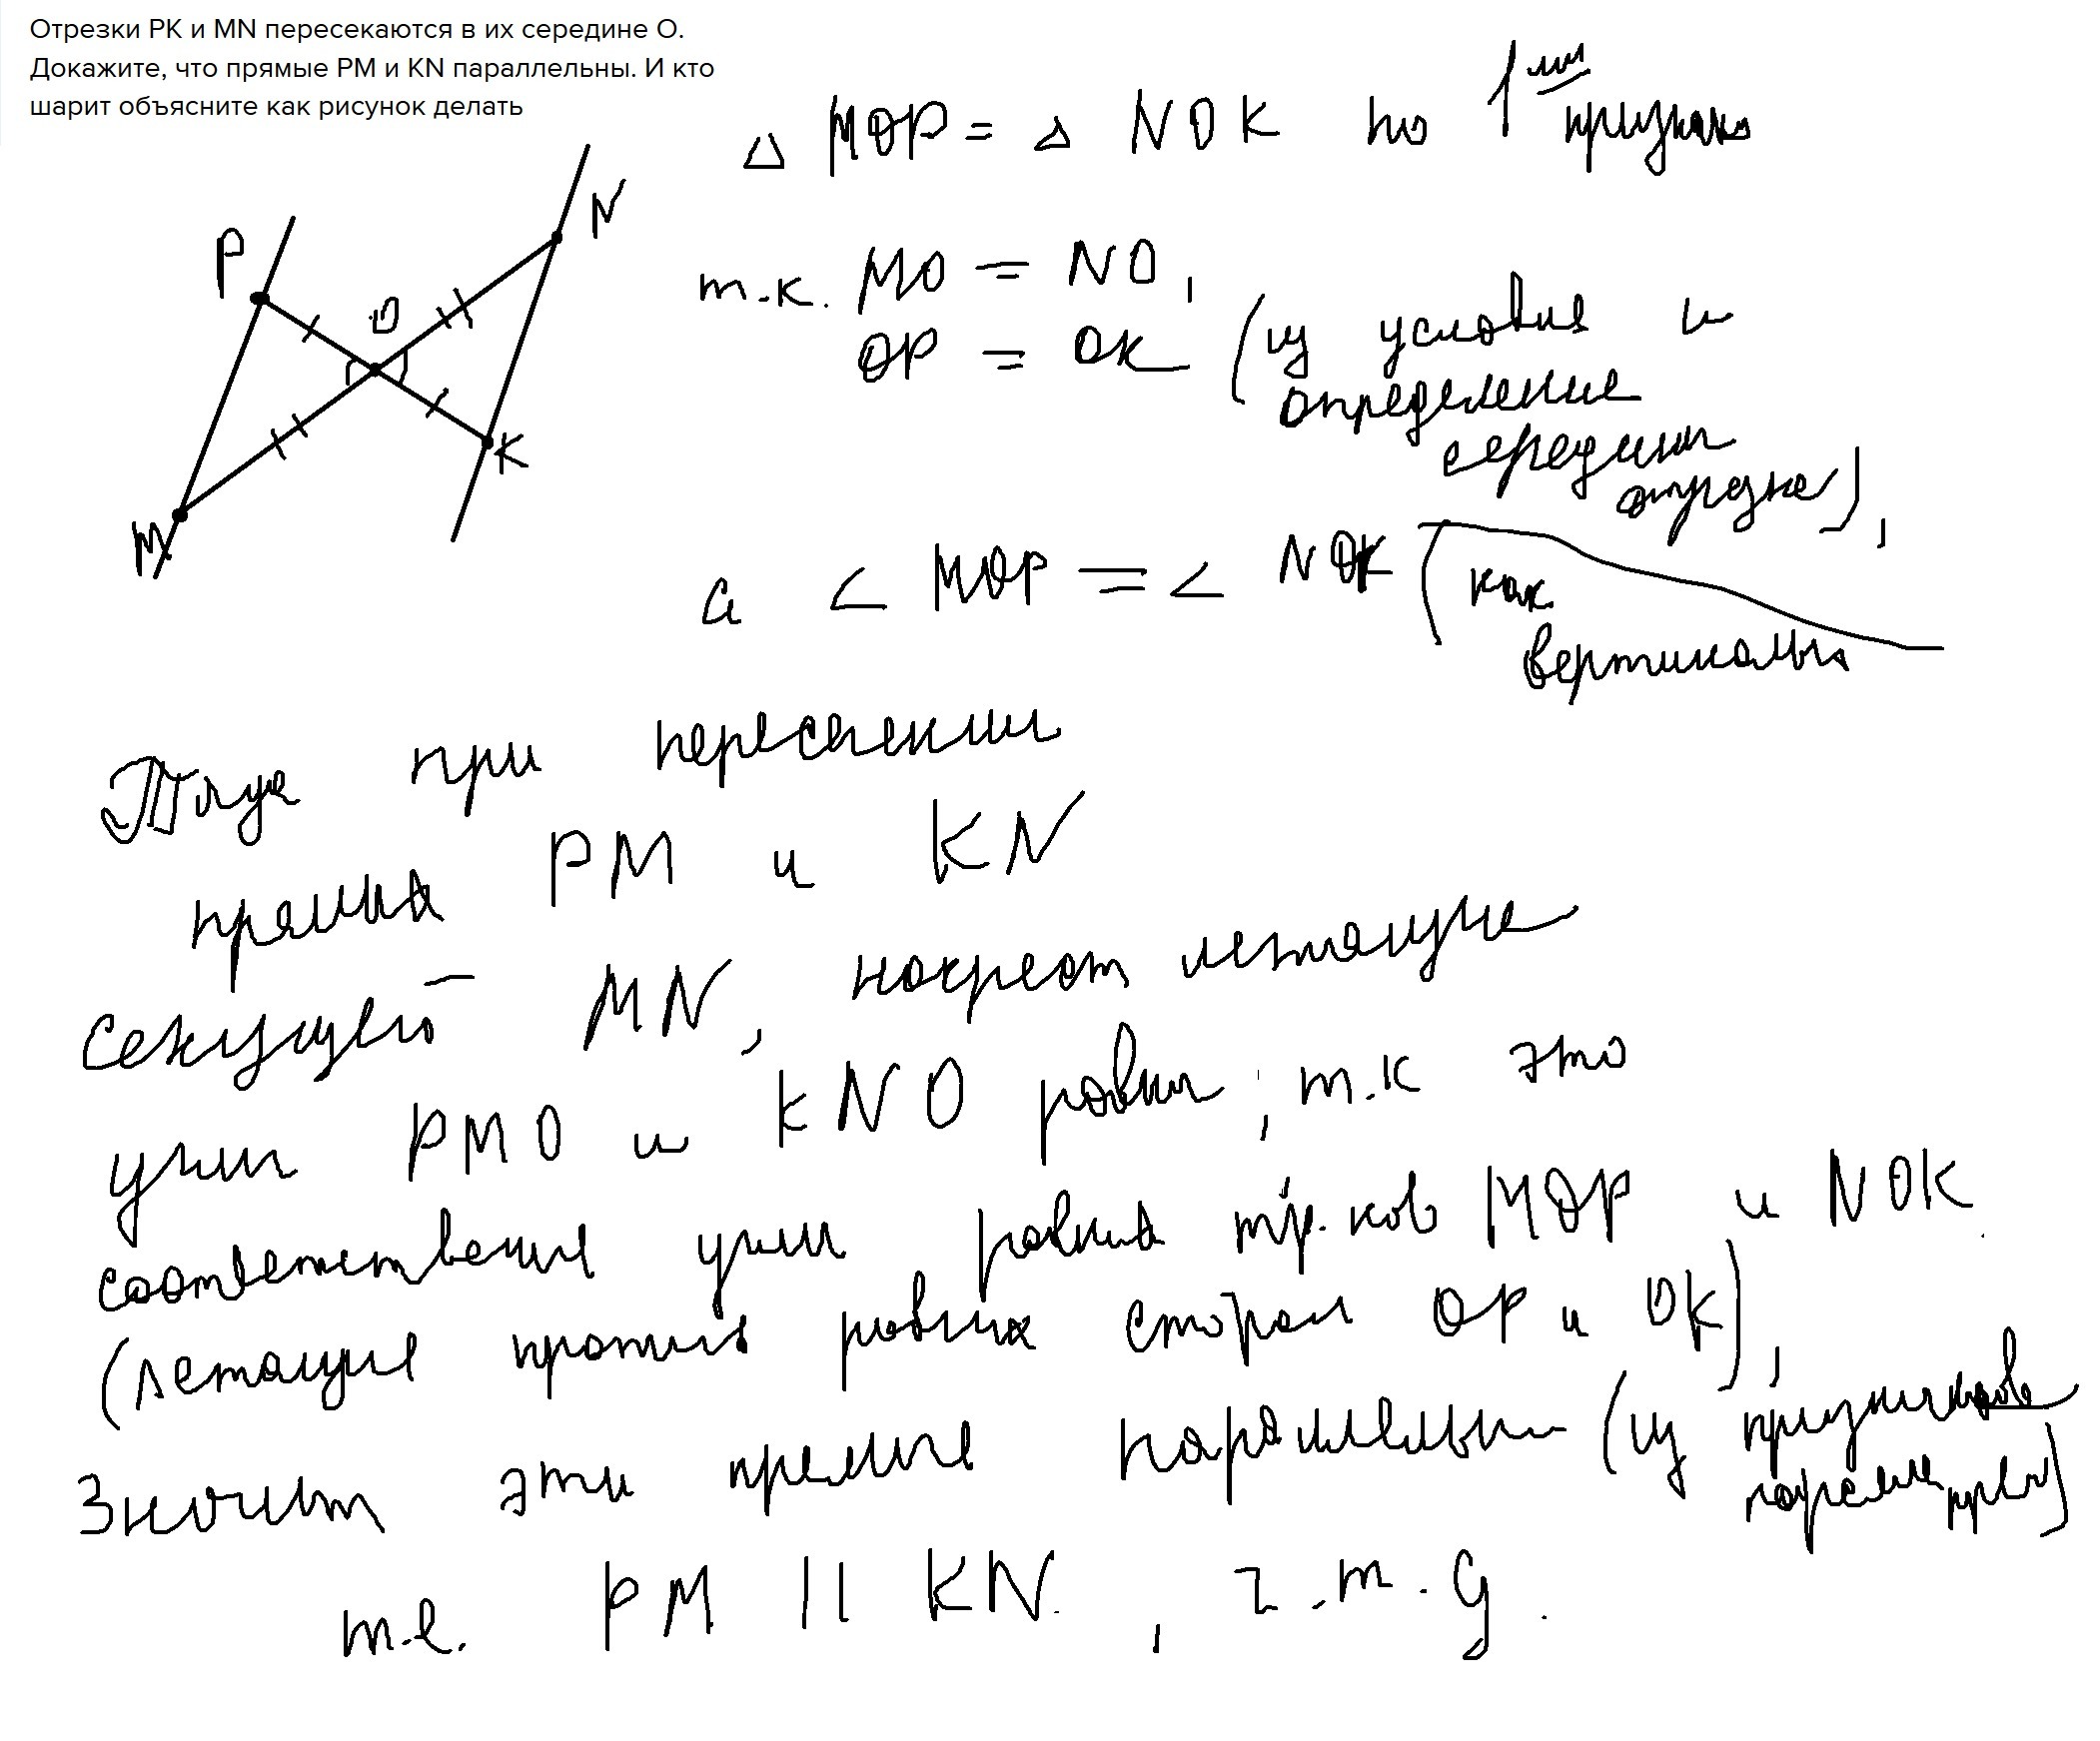 Отрезки РК и MN пересекаются в их середине О.
Докажите, что прямые РМ и KN параллельны. И кто
шарит объясните как рисунок делать
P
N
O
K
M
△ MOP = △ NOK по 1ому признаку
т.к. MO = NO,
OP = OK (из условия и
определение
середины
отрезка),
а < MOP = < NOK (как
вертикальн
при пересечении
прямых PM и KN
секущей MN, накрест лежащие
углы PMO и KNO равны, т.к это
соответственные углы равных тр.ков MOP и NOK
(лежащие против равных сторон OP и OK),
Значит эти прямые параллельны (из признаков
паралле прям)
т.е. PM || KN, ч.т.д.